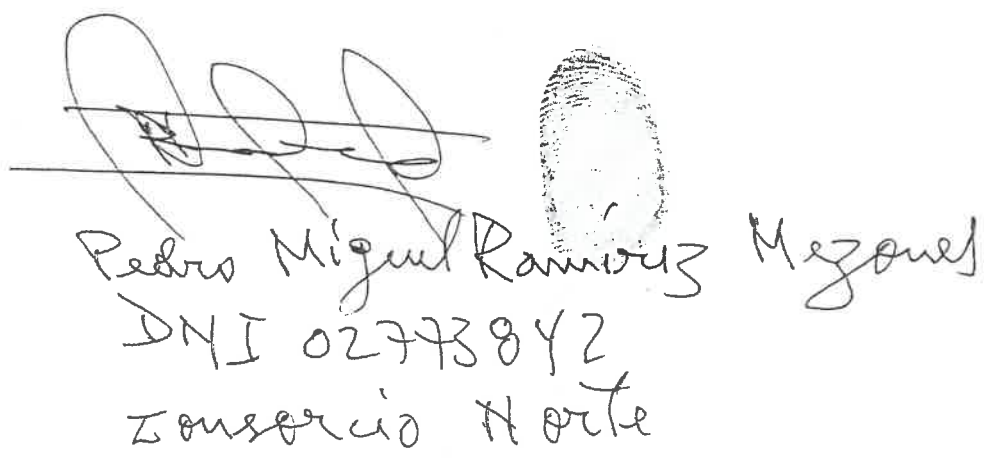 Pedro Miguel Ramírez Mezones
DNI 02773842
Consorcio Norte